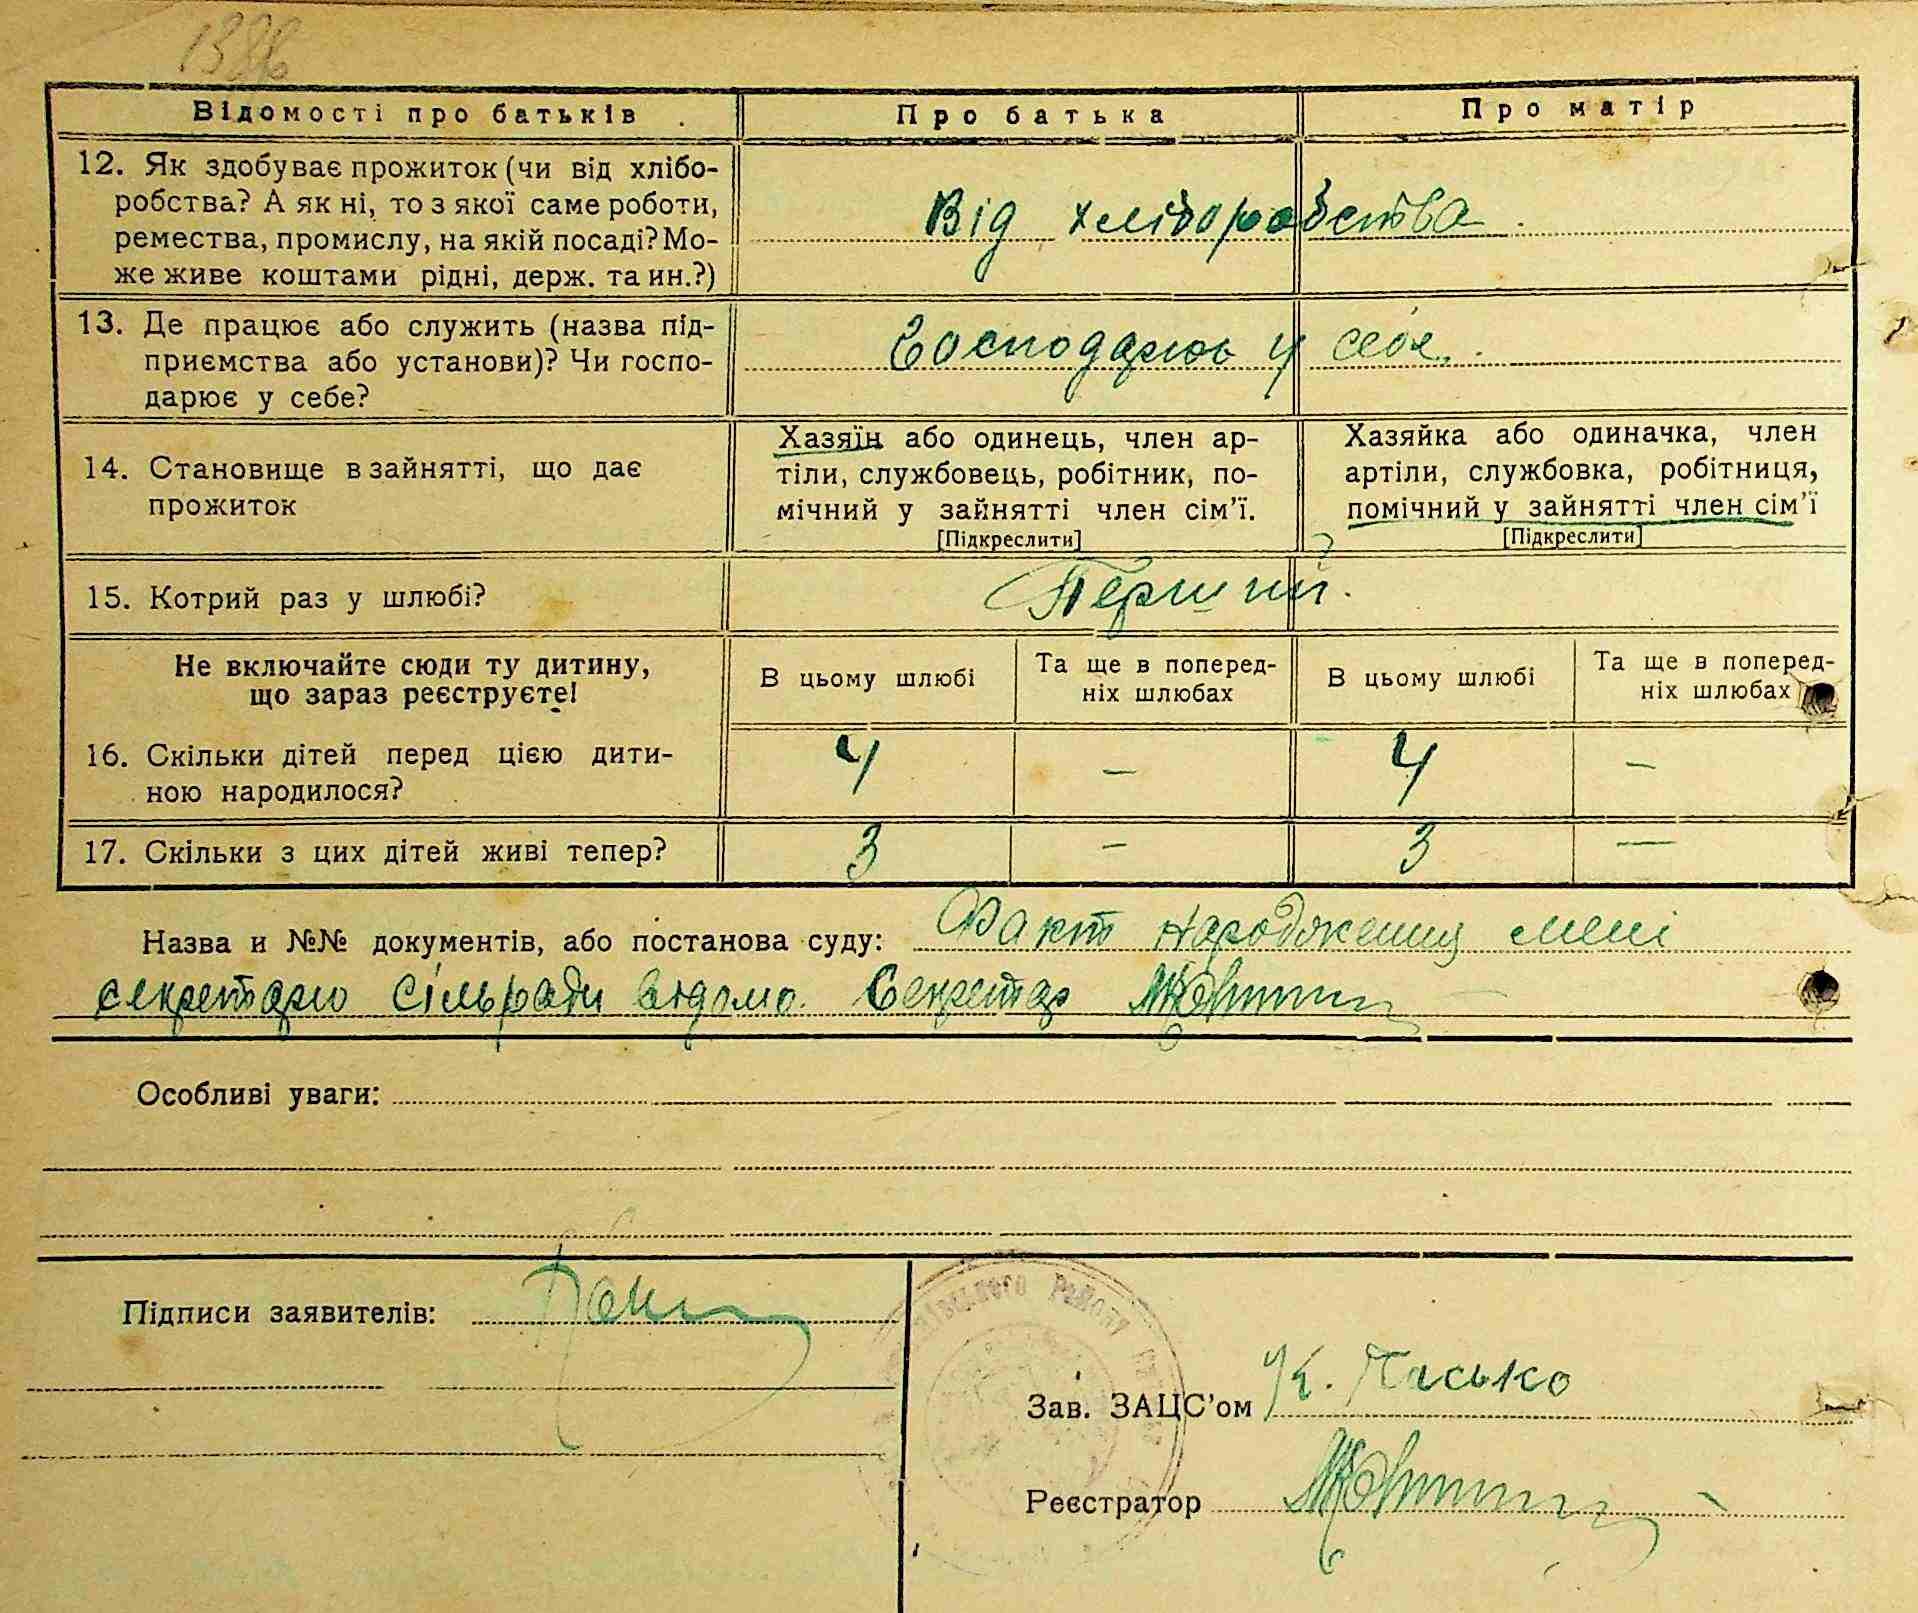 1326
Відомості про батьків
Про батька
Про матір
12. Як здобуває прожиток (чи від хлібо-
робства? А як ні, то з якої саме роботи,
ремества, промислу, на якій посаді? Мо-
же живе коштами рідні, держ. та ин.?)
Від хліборобства
13. Де працює або служить (назва під-
приємства або установи)? Чи госпо-
дарює у себе?
Господарює у себе.
14. Становище в зайнятті, що дає
прожиток
Хазяїн або одинець, член ар-
тіли, службовець, робітник, по-
мічний у зайнятті член сім'ї.
[Підкреслити]
Хазяйка або одиначка, член
артіли, службовка, робітниця,
помічний у зайнятті член сім'ї
[Підкреслити]
15. Котрий раз у шлюбі?
Перший.
Не включайте сюди ту дитину,
що зараз реєструєте!
В цьому шлюбі
Та ще в поперед-
ніх шлюбах
В цьому шлюбі
Та ще в поперед-
ніх шлюбах
16. Скільки дітей перед цією дити-
ною народилося?
4 — 4 —
17. Скільки з цих дітей живі тепер?
3 — 3 —
Назва и №№ документів, або постанова суду: Факт народження мені
секретарю сільради відомо. Секретар
Особливі уваги:
Підписи заявителів:
Району
Зав. ЗАЦС'ом К. Пасько
Реєстратор